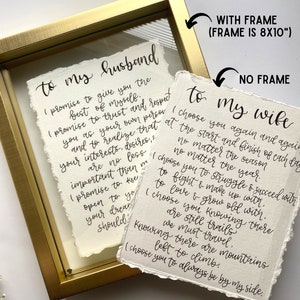 WITH FRAME
(FRAME IS 8X10")
NO FRAME
to my husband
I promise to give you the
best of myself.
I promise to trust and respect
you as your own person
and to realize that
your interests, desires,
are no less
important than
I promise to
open to
your
should
to my wife
I choose you again and again
at the start and finish of each day
no matter the season
no matter the year.
I choose you to struggle & succeed with
to fight & make up with
to love & grow old with.
I choose you knowing there
are still trails
we must travel.
Knowing there are mountains
left to climb.
I choose you to always be by my side.